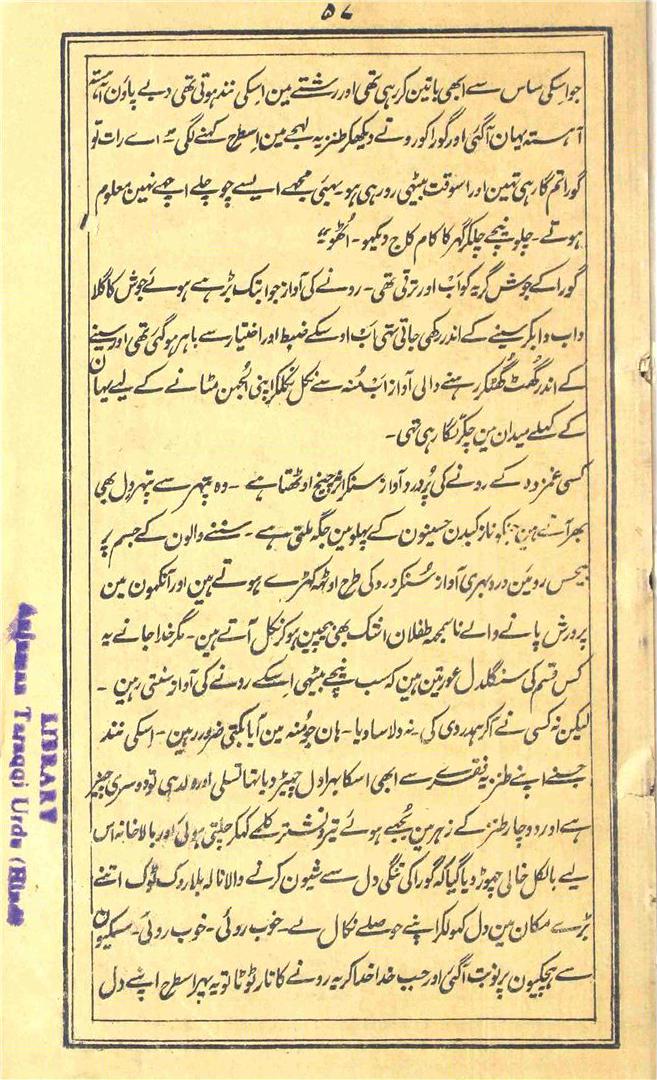 ۵۷
جو اسکی ساس سے ابھی باتین کر رہی تھی اور رشتے مین اسکی نند ہوتی تھی دبے پاؤن آہستہ
آہستہ یہان آگئی اور گورا کو روتے دیکھکر طنزیہ لہجے مین اسطرح کہنے لگی " اے رات تو
گورا تم گا رہی تہین اور اسوقت بیٹھی رو رہی ہو بہئی مجھے ایسے چوچلے اچھے نہین معلوم
ہوتے ۔ چلو نیچے چلکر گہر کا کام کاج دیکھو ۔ اُٹھو "
گورا کے جوش گریہ کو اَب اور ترقی تھی ۔ رونے کی آواز جو ابتک بڑہے ہوئے جوش کا گلا
داب دابکر سینے کے اندر رکھی جاتی تہی اَب اوسکے ضبط اور اختیار سے باہر ہو گئی تھی اور سینے
کے اندر گُھٹ گُھٹکر رہنے والی آواز اَب مُنہ سے نکل نکلکر اپنی اُلجھن مٹانے کے لیے یہان
کے کہلے میدان مین چکر لگا رہی تہی ۔
کسی غمزدہ کے رونے کی پُردرد آواز سنکر اثر چیخ اوٹھتا ہے ۔ وہ پتہر سے پتہر دل بھی
بھر آتے ہین جنکو نازکبدن حسینون کے پہلو مین جگہ ملتی ہے ۔ سننے والون کے جسم پر
بیحس روئین درد بہری آواز سُنکر درد کی طرح اوٹھ کہڑے ہوتے ہین اور آنکھون مین
پرورش پانے والے ناسمجھ طفلان اشک بھی بیچین ہوکر نکل آتے ہین ۔ مگر خدا جانے یہ
کس قسم کی سنگدل عورتین ہین کہ سب نیچے بیٹھی اسکے رونے کی آواز سنتی رہین ۔
لیکن نہ کسی نے آکر ہمدردی کی ۔ نہ دلاسا دیا ۔ ہان جو مُنہ مین آیا بکتی ضرور رہین ۔ اسکی نند
جسنے اپنے طنزیہ فقرے سے ابھی اسکا بہرا دل چھیڑ دیا تہا تسلی اور دلدہی تو دوسری چیز
ہے اور دو چار طنز کے زہر مین بُجھے ہوئے تیر و نشتر کلمے کہکر چلتی ہوئی اور بالا خانہ اس
لیے بالکل خالی چھوڑ دیا گیا کہ گورا کی تنگی دل سے شیون کرنے والا نالہ بلا روک ٹوک اتنے
بڑے مکان مین دل کہولکر اپنے حوصلے نکال لے ۔ خوب روئی ۔ خوب روئی ۔ سسکیون
سے ہچکیون پر نوبت آگئی اور جب خدا خدا کر یہ رونے کا تار ٹوٹا تو یہ پہر اسطرح اپنے دل
LIBRARY
Anjuman Taraqqi Urdu (Hind)